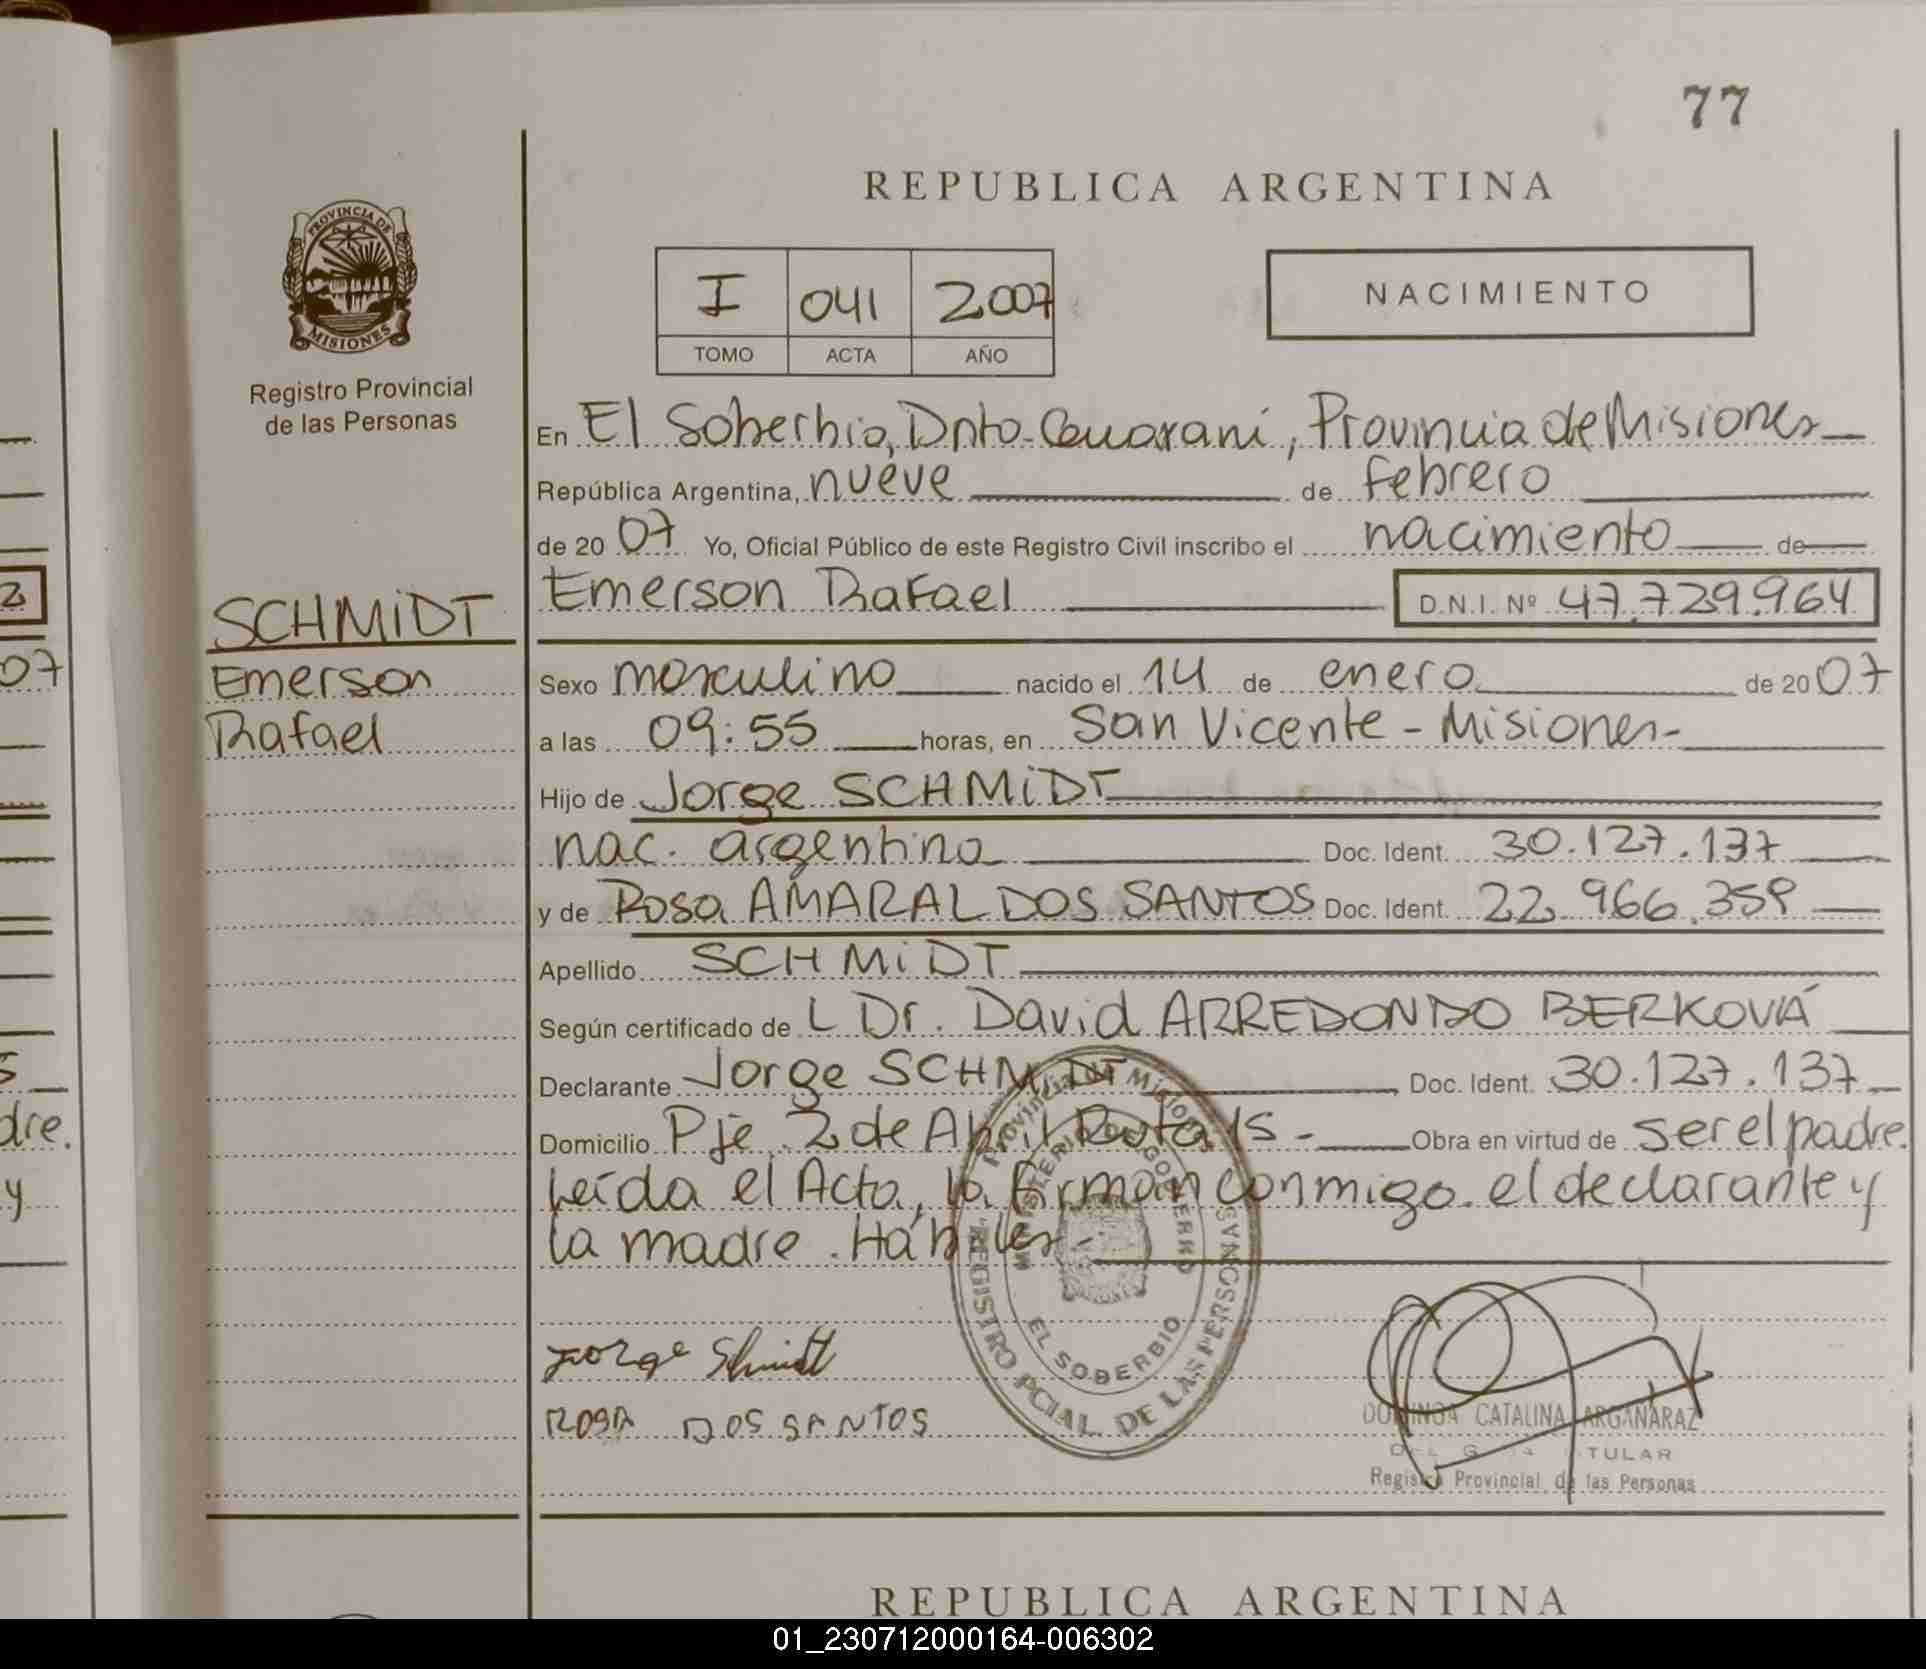 77
REPUBLICA ARGENTINA
PROVINCIA DE
MISIONES
Registro Provincial
de las Personas
I 041 2007
TOMO ACTA AÑO
NACIMIENTO
En El Soberbio, Dpto. Guaraní, Provincia de Misiones
República Argentina, nueve de febrero
de 20 07 Yo, Oficial Público de este Registro Civil inscribo el nacimiento de
Emerson Rafael D.N.I. Nº 47.729.964
SCHMiDT
Emerson
Rafael
Sexo masculino nacido el 14 de enero de 20 07
a las 09:55 horas, en San Vicente - Misiones-
Hijo de Jorge SCHMiDT
nac. argentina Doc. Ident. 30.127.137
y de Rosa AMARAL DOS SANTOS Doc. Ident. 22.966.359
Apellido SCHMiDT
Según certificado de L Dr. David ARREDONDO BERKOVÁ
Declarante Jorge SCHMiDT Doc. Ident. 30.127.137
Domicilio Pje. 2 de Abril Ruta 15 - Obra en virtud de ser el padre.
Leída el Acta, la firman conmigo el declarante y
la madre. Hábiles -
Provincia de Misiones
MINISTERIO DE GOBIERNO
EL SOBERBIO
REGISTRO PCIAL. DE LAS PERSONAS
Jorge Shmidt
ROSA DOS SANTOS
DOMINGA CATALINA ARGAÑARAZ
TITULAR
Registro Provincial de las Personas
REPUBLICA ARGENTINA
2
07
5
dre.
y
01_230712000164-006302